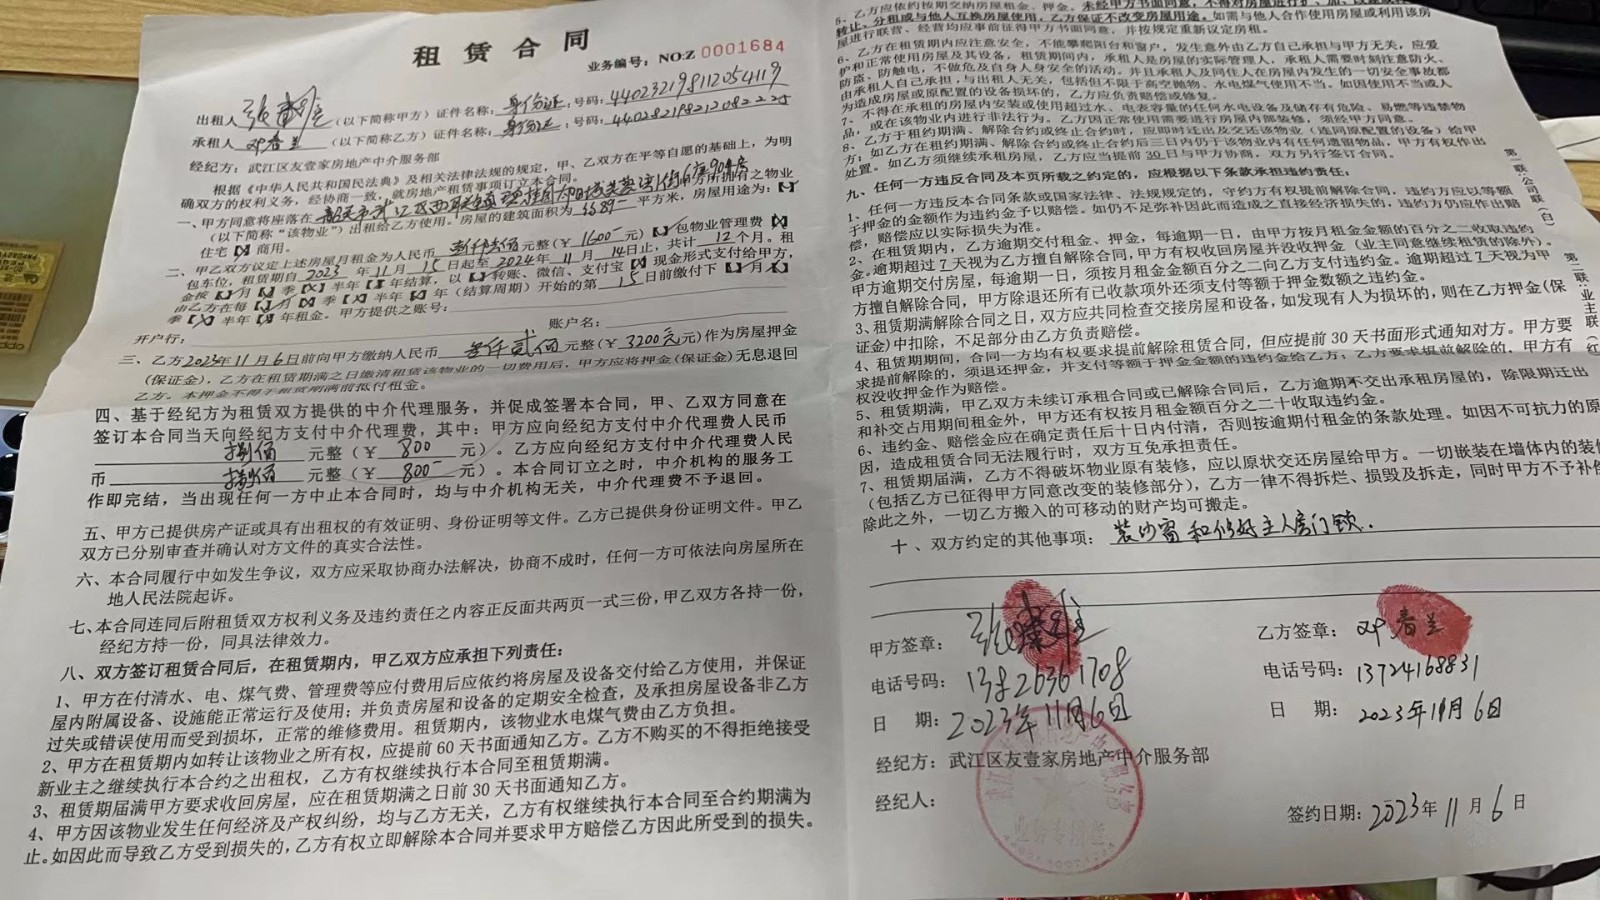 租赁合同
业务编号：NO:Z 0001684
出租人 （以下简称甲方）证件名称：身份证；号码：
承租人 邓春兰 （以下简称乙方）证件名称：身份证；号码：
经纪方：武江区友壹家房地产中介服务部
根据《中华人民共和国民法典》及相关法律法规的规定，甲、乙双方在平等自愿的基础上，为明
确双方的权利义务，经协商一致，就房地产租赁事项订立本合同。
一、甲方同意将座落在 甲方所拥有之物业
（以下简称“该物业”）出租给乙方使用。房屋的建筑面积为 平方米，房屋用途为：【】
住宅【】商用。
二、甲乙双方议定上述房屋月租金为人民币 壹仟陆佰 元整（￥ 1600 元）【】包物业管理费【】
包车位，租赁期自 2023 年 11 月 15 日起至 2024 年 11 月 14 日止，共计 12 个月。租
金按【】月【】季【】半年【】年结算，以【】转账、微信、支付宝【】现金形式支付给甲方，
由乙方在每【】月【】季【】半年【】年（结算周期）开始的第 15 日前缴付下【】月【】
季【】半年【】年租金。甲方提供之账号：
开户行： 账户名：
三、乙方2023年11月6日前向甲方缴纳人民币 叁仟贰佰 元整（￥ 3200元 元）作为房屋押金
（保证金），乙方在租赁期满之日缴清租赁该物业的一切费用后，甲方应将押金（保证金）无息退回
乙方。本押金不得于租赁期满前抵付租金。
四、基于经纪方为租赁双方提供的中介代理服务，并促成签署本合同，甲、乙双方同意在
签订本合同当天向经纪方支付中介代理费，其中：甲方应向经纪方支付中介代理费人民币
捌佰 元整（￥ 800 元）。乙方应向经纪方支付中介代理费人民
币 捌佰 元整（￥ 800 元）。本合同订立之时，中介机构的服务工
作即完结，当出现任何一方中止本合同时，均与中介机构无关，中介代理费不予退回。
五、甲方已提供房产证或具有出租权的有效证明、身份证明等文件。乙方已提供身份证明文件。甲乙
双方已分别审查并确认对方文件的真实合法性。
六、本合同履行中如发生争议，双方应采取协商办法解决，协商不成时，任何一方可依法向房屋所在
地人民法院起诉。
七、本合同连同后附租赁双方权利义务及违约责任之内容正反面共两页一式三份，甲乙双方各持一份，
经纪方持一份，同具法律效力。
八、双方签订租赁合同后，在租赁期内，甲乙双方应承担下列责任：
1、甲方在付清水、电、煤气费、管理费等应付费用后应依约将房屋及设备交付给乙方使用，并保证
屋内附属设备、设施能正常运行及使用；并负责房屋和设备的定期安全检查，及承担房屋设备非乙方
过失或错误使用而受到损坏，正常的维修费用。租赁期内，该物业水电煤气费由乙方负担。
2、甲方在租赁期内如转让该物业之所有权，应提前60天书面通知乙方。乙方不购买的不得拒绝接受
新业主之继续执行本合约之出租权，乙方有权继续执行本合同至租赁期满。
3、租赁期届满甲方要求收回房屋，应在租赁期满之日前30天书面通知乙方。
4、甲方因该物业发生任何经济及产权纠纷，均与乙方无关，乙方有权继续执行本合同至合约期满为
止。如因此而导致乙方受到损失的，乙方有权立即解除本合同并要求甲方赔偿乙方因此所受到的损失。
5、乙方应依约按期交纳房屋租金、押金。未经甲方书面同意，不得对房屋进行
转让、分租或与他人互换房屋使用，乙方保证不改变房屋用途。如需与他人合作使用房屋或利用该房
屋进行联营、经营均应事前征得甲方书面同意，并按规定重新议定房租。
6、乙方在租赁期内应注意安全，不能攀爬阳台和窗户，发生意外由乙方自己承担与甲方无关，应爱
护和正常使用房屋及其设备，租赁期间内，承租人是房屋的实际管理人，承租人需要时刻注意防火、
防盗、防触电，不做危及自身人身安全的活动。并且承租人及同住人在房屋内发生的一切安全事故都
由承租人自己承担，与出租人无关，包括但不限于高空抛物、水电煤气使用不当。如因使用不当或人
为造成房屋或原配置的设备损坏的，乙方应负责赔偿或修复。
7、不得在承租的房屋内安装或使用超过水、电表容量的任何水电设备及储存有危险、易燃等违禁物
品，或在该物业内进行非法行为。乙方因正常使用需要进行房屋内部装修，须经甲方同意。
8、乙方于租约期满、解除合约或终止合约时，应即时迁出及交还该物业（连同原配置的设备）给甲
方；如乙方在租约期满、解除合约或终止合约后三日内仍于该物业内有任何遗留物品，甲方有权作出
处置。如乙方须继续承租房屋，乙方应当提前30日与甲方协商，双方另行签订合同。
九、任何一方违反合同及本页所载之约定的，应根据以下条款承担违约责任：
1、任何一方违反本合同条款或国家法律、法规规定的，守约方有权提前解除合同，违约方应以等额
于押金的金额作为违约金予以赔偿。如仍不足弥补因此而造成之直接经济损失的，违约方仍应作出赔
偿，赔偿应以实际损失为准。
2、在租赁期内，乙方逾期交付租金、押金，每逾期一日，由甲方按月租金金额的百分之二收取违约
金。逾期超过7天视为乙方擅自解除合同，甲方有权收回房屋并没收押金（业主同意继续租赁的除外）。
甲方逾期交付房屋，每逾期一日，须按月租金金额百分之二向乙方支付违约金。逾期超过7天视为甲
方擅自解除合同，甲方除退还所有已收款项外还须支付等额于押金数额之违约金。
3、租赁期满解除合同之日，双方应共同检查交接房屋和设备，如发现有人为损坏的，则在乙方押金（保
证金）中扣除，不足部分由乙方负责赔偿。
4、租赁期期间，合同一方均有权要求提前解除租赁合同，但应提前30天书面形式通知对方。甲方要
求提前解除的，须退还押金，并支付等额于押金金额的违约金给乙方；乙方要求提前解除的，甲方有
权没收押金作为赔偿。
5、租赁期满，甲乙双方未续订承租合同或已解除合同后，乙方逾期不交出承租房屋的，除限期迁出
和补交占用期间租金外，甲方还有权按月租金额百分之二十收取违约金。
6、违约金、赔偿金应在确定责任后十日内付清，否则按逾期付租金的条款处理。如因不可抗力的原
因，造成租赁合同无法履行时，双方互免承担责任。
7、租赁期届满，乙方不得破坏物业原有装修，应以原状交还房屋给甲方。一切嵌装在墙体内的装
（包括乙方已征得甲方同意改变的装修部分），乙方一律不得拆烂、损毁及拆走，同时甲方不予补偿
除此之外，一切乙方搬入的可移动的财产均可搬走。
十、双方约定的其他事项：装沙窗和修好主人房门锁.
甲方签章：
乙方签章：邓春兰
电话号码：
电话号码：13724168831
日 期：2023年11月6日
日 期：2023年11月6日
经纪方：武江区友壹家房地产中介服务部
经纪人：
签约日期：2023年11月6日
第一联：公司联（白）
第二联：业主联（红